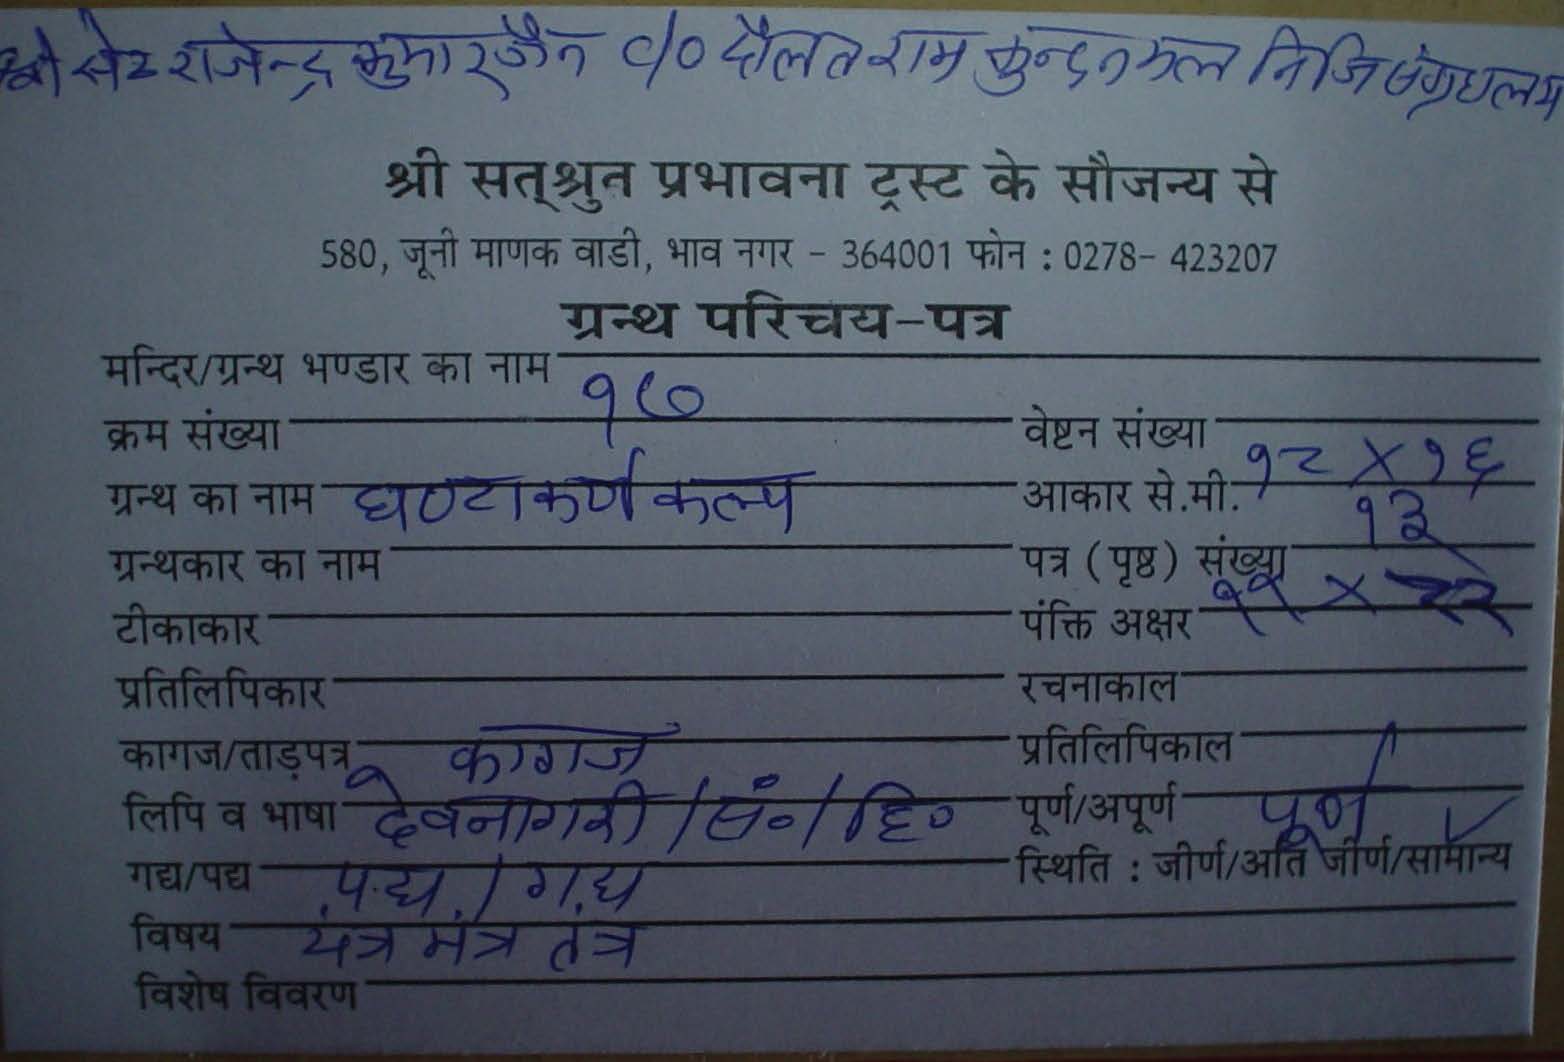 श्री सेठ राजेन्द्र कुमार जैन c/o दौलतराम कुन्दनमल निजि संग्रहालय
श्री सत्‌श्रुत प्रभावना ट्रस्ट के सौजन्य से
580, जूनी माणक वाडी, भाव नगर - 364001 फोन : 0278- 423207
ग्रन्थ परिचय-पत्र
मन्दिर/ग्रन्थ भण्डार का नाम
क्रम संख्या १८७ वेष्टन संख्या
ग्रन्थ का नाम घण्टाकर्ण कल्प आकार से.मी. १२ X १६
ग्रन्थकार का नाम पत्र (पृष्ठ) संख्या १३
टीकाकार पंक्ति अक्षर X
प्रतिलिपिकार रचनाकाल
कागज/ताड़पत्र कागज प्रतिलिपिकाल
लिपि व भाषा देवनागरी /सं०/ हि० पूर्ण/अपूर्ण पूर्ण
गद्य/पद्य पद्य / गद्य स्थिति : जीर्ण/अति जीर्ण/सामान्य
विषय यंत्र मंत्र तंत्र
विशेष विवरण